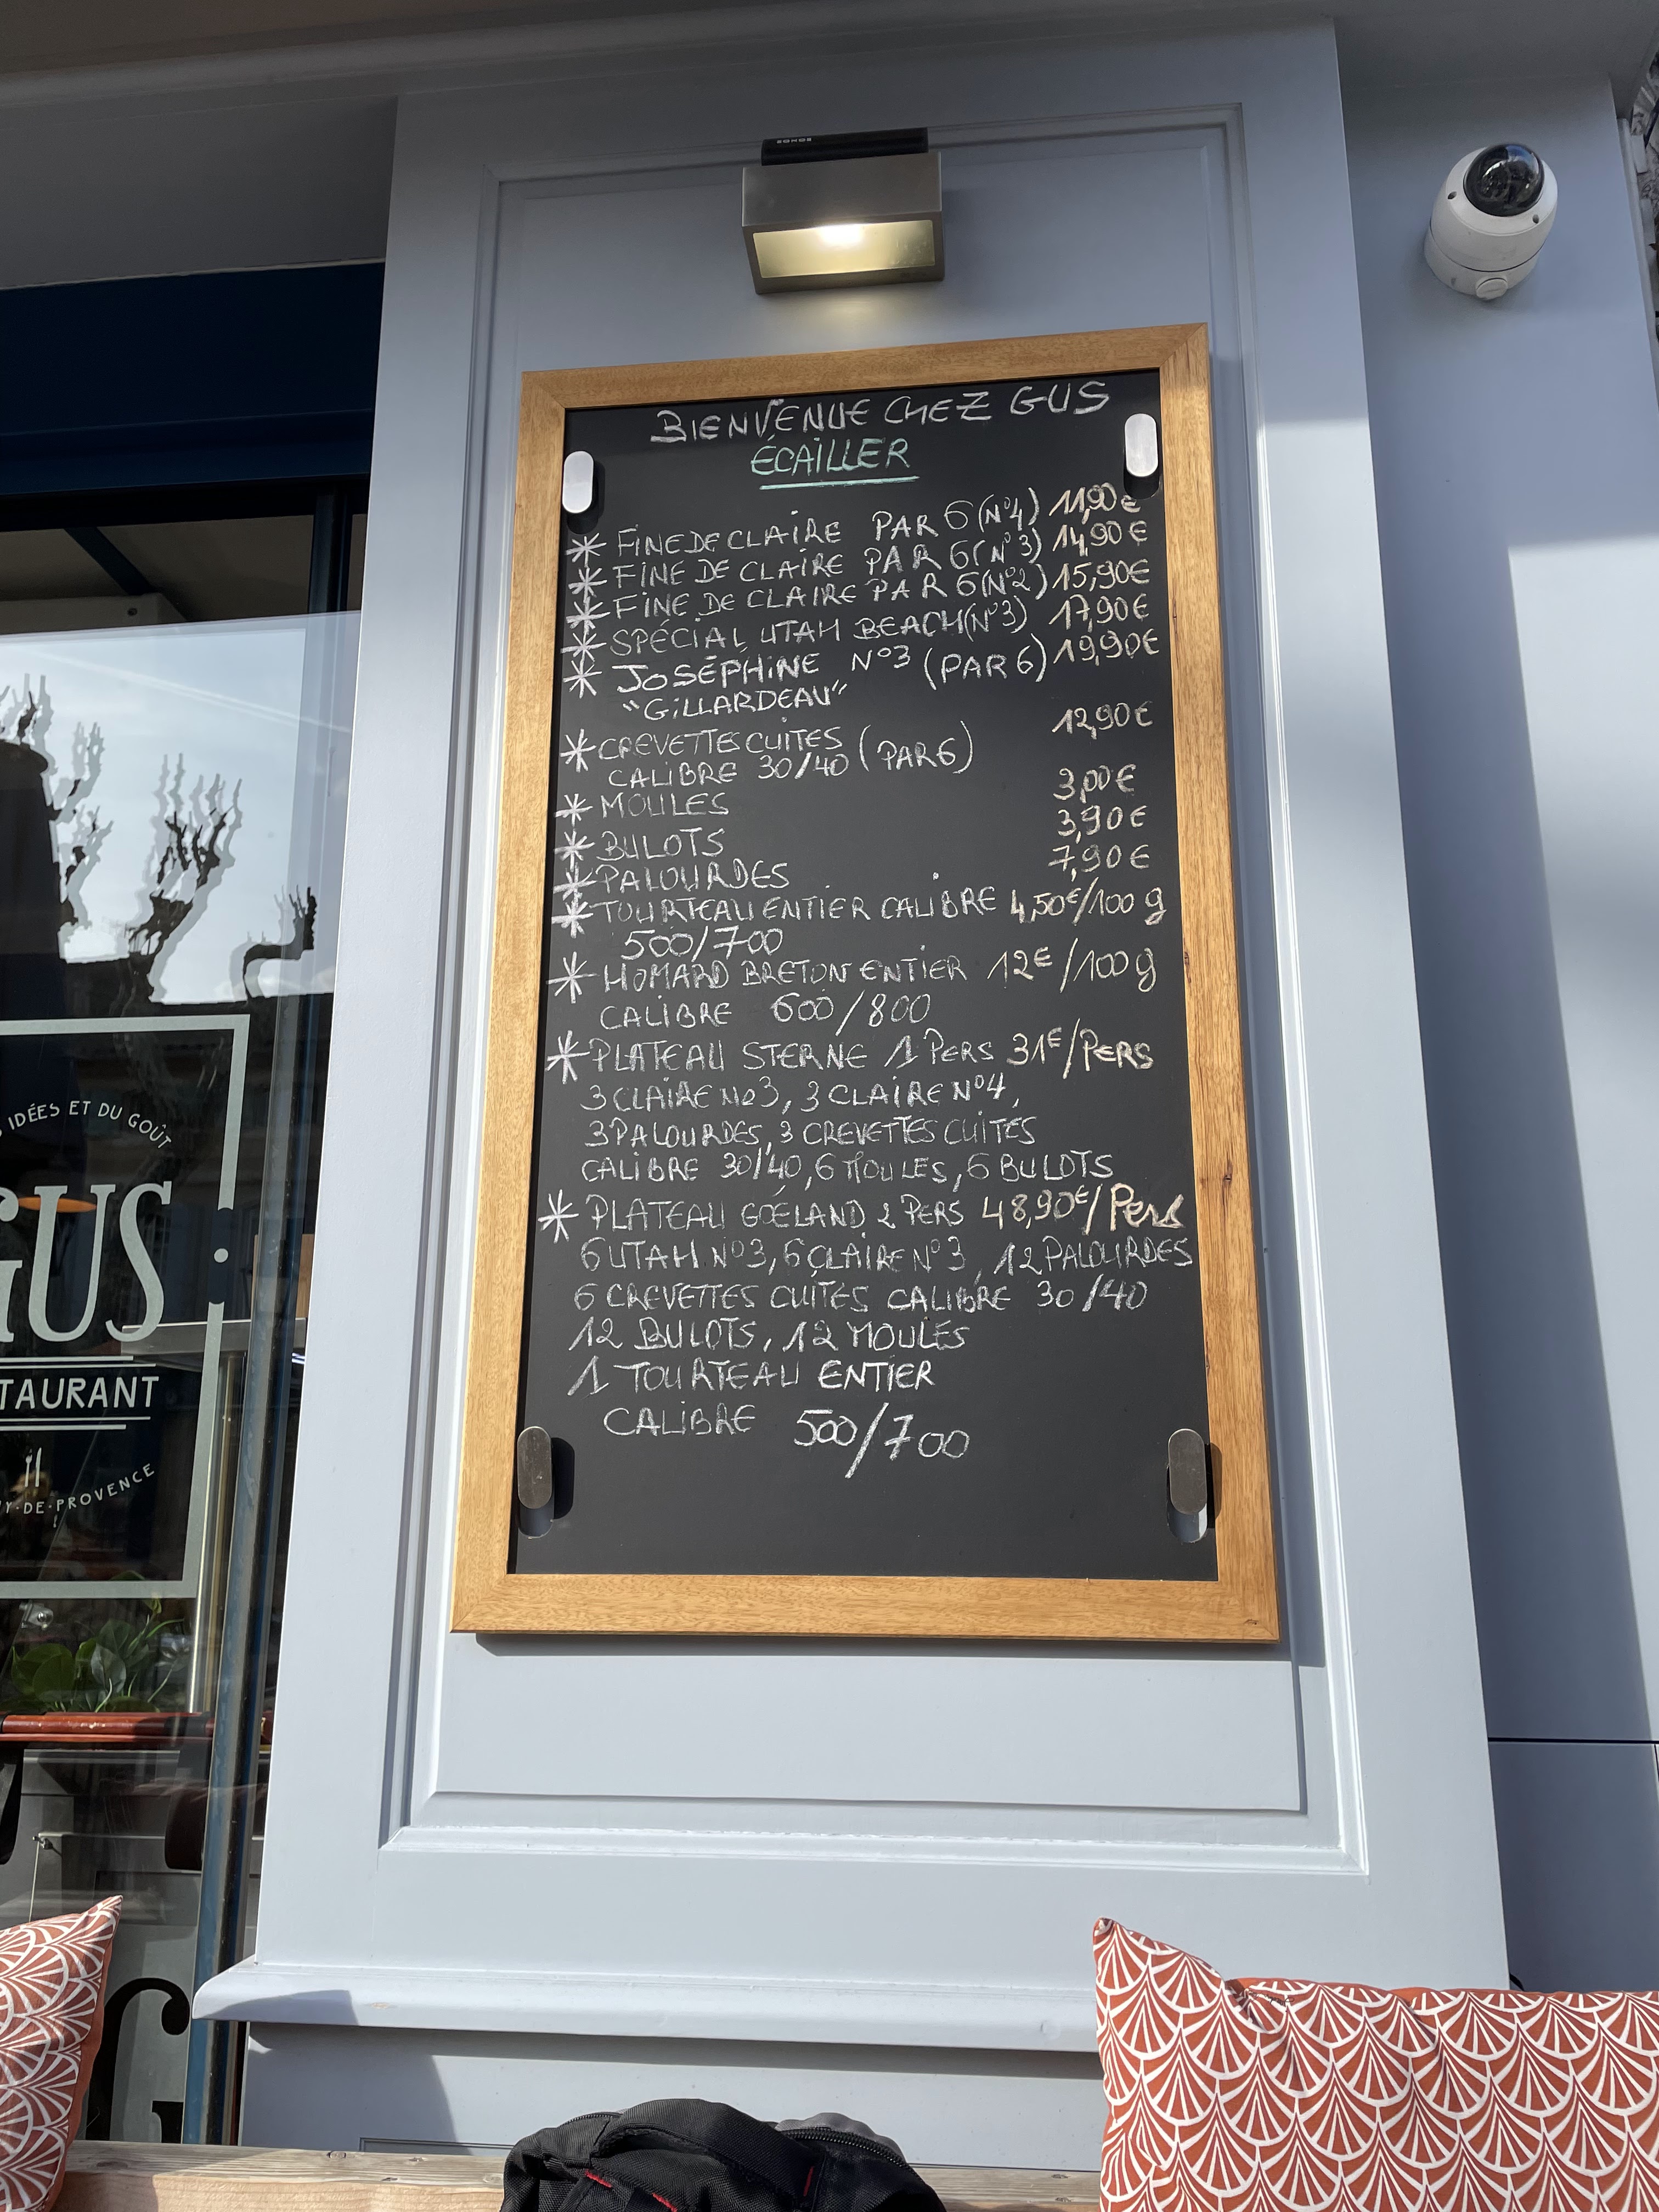 BIENVENUE CHEZ GUS
ÉCAILLER
* FINE DE CLAIRE PAR 6 (N°4) 11,90€
* FINE DE CLAIRE PAR 6 (N°3) 14,90€
* FINE DE CLAIRE PAR 6 (N°2) 15,90€
* SPÉCIAL UTAH BEACH (N°3) 17,90€
* JOSÉPHINE N°3 (PAR 6) 19,90€
"GILLARDEAU"
* CREVETTES CUITES 12,90€
CALIBRE 30/40 (PAR 6)
* MOULES 3,00€
* BULOTS 3,90€
* PALOURDES 7,90€
* TOURTEAU ENTIER CALIBRE 4,50€/100 g
500/700
* HOMARD BRETON ENTIER 12€/100g
CALIBRE 600/800
* PLATEAU STERNE 1 PERS 31€/PERS
3 CLAIRE No3, 3 CLAIRE N°4,
3 PALOURDES, 3 CREVETTES CUITES
CALIBRE 30/40, 6 MOULES, 6 BULOTS
* PLATEAU GOÉLAND 2 PERS 48,90€/Pers
6 UTAH N°3, 6 CLAIRE N°3, 12 PALOURDES
6 CREVETTES CUITES CALIBRE 30/40
12 BULOTS, 12 MOULES
1 TOURTEAU ENTIER
CALIBRE 500/700
IDÉES ET DU GOÛT
GUS
TAURANT
Y-DE-PROVENCE
G